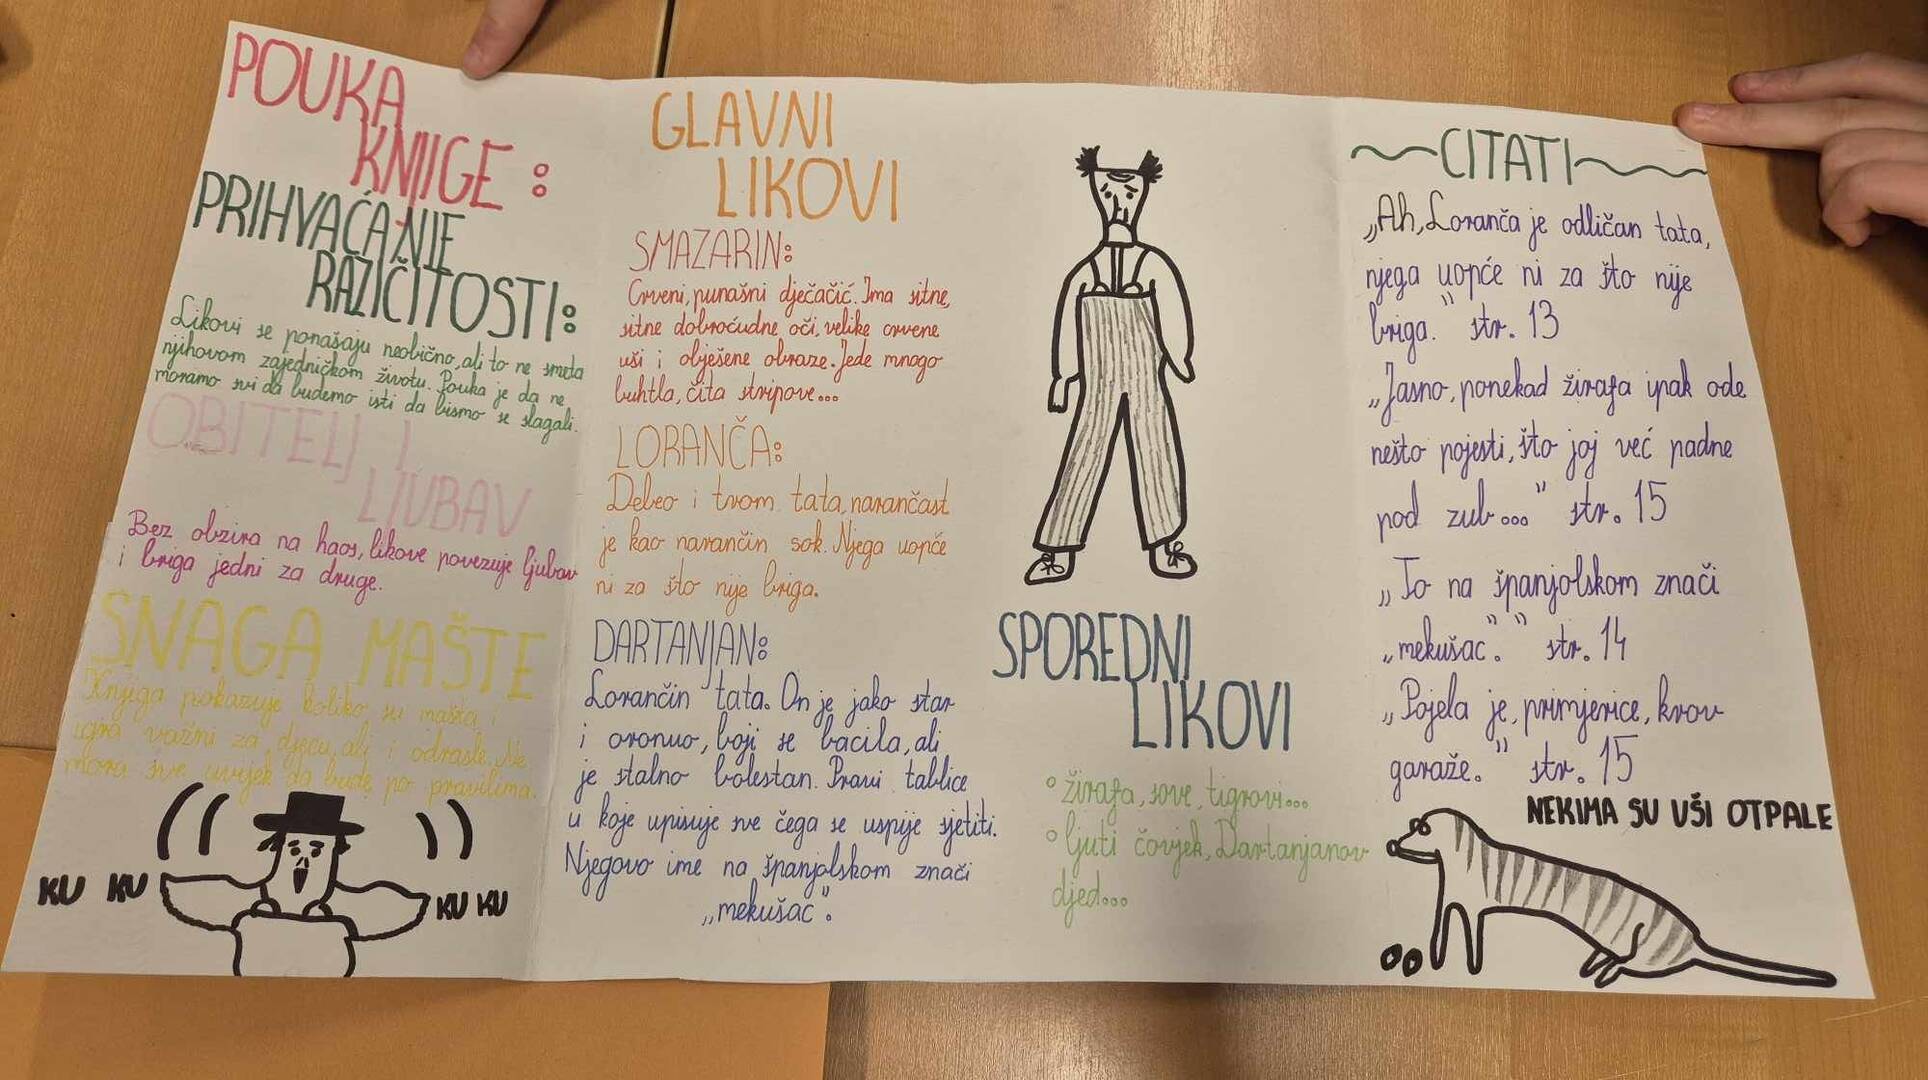 POUKA
KNJIGE:
PRIHVAĆANJE
RAZIČITOSTI:
Likovi se ponašaju neobično, ali to ne smeta
njihovom zajedničkom životu. Pouka je da ne
moramo svi da budemo isti da bismo se slagali.
OBITELJ I
LJUBAV
Bez obzira na haos, likove povezuje ljubav
i briga jedni za druge.
SNAGA MAŠTE
Knjiga pokazuje koliko su mašta i
igra važni za djecu, ali i odrasle. Ne
mora sve uvijek da bude po pravilima.
KU KU
KU KU
GLAVNI
LIKOVI
SMAZARIN:
Crveni, punašni dječačić. Ima sitne,
sitne dobroćudne oči, velike crvene
uši i obješene obraze. Jede mnogo
buhtla, čita stripove...
LORANČA:
Debeo i trom tata, narančast
je kao narančin sok. Njega uopće
ni za što nije briga.
DARTANJAN:
Lorančin tata. On je jako star
i oronuo, boji se bacila, ali
je stalno bolestan. Pravi tablice
u koje upisuje sve čega se uspije sjetiti.
Njegovo ime na španjolskom znači
„mekušac".
SPOREDNI
LIKOVI
° žirafa, sove, tigrovi...
° ljuti čovjek, Dartanjanov
djed...
~CITATI~
„Ah, Loranča je odličan tata,
njega uopće ni za što nije
briga." str. 13
„Jasno, ponekad žirafa ipak ode
nešto pojesti, što joj već padne
pod zub..." str. 15
„To na španjolskom znači
„mekušac"." str. 14
„Pojela je, primjerice, krov
garaže." str. 15
NEKIMA SU UŠI OTPALE